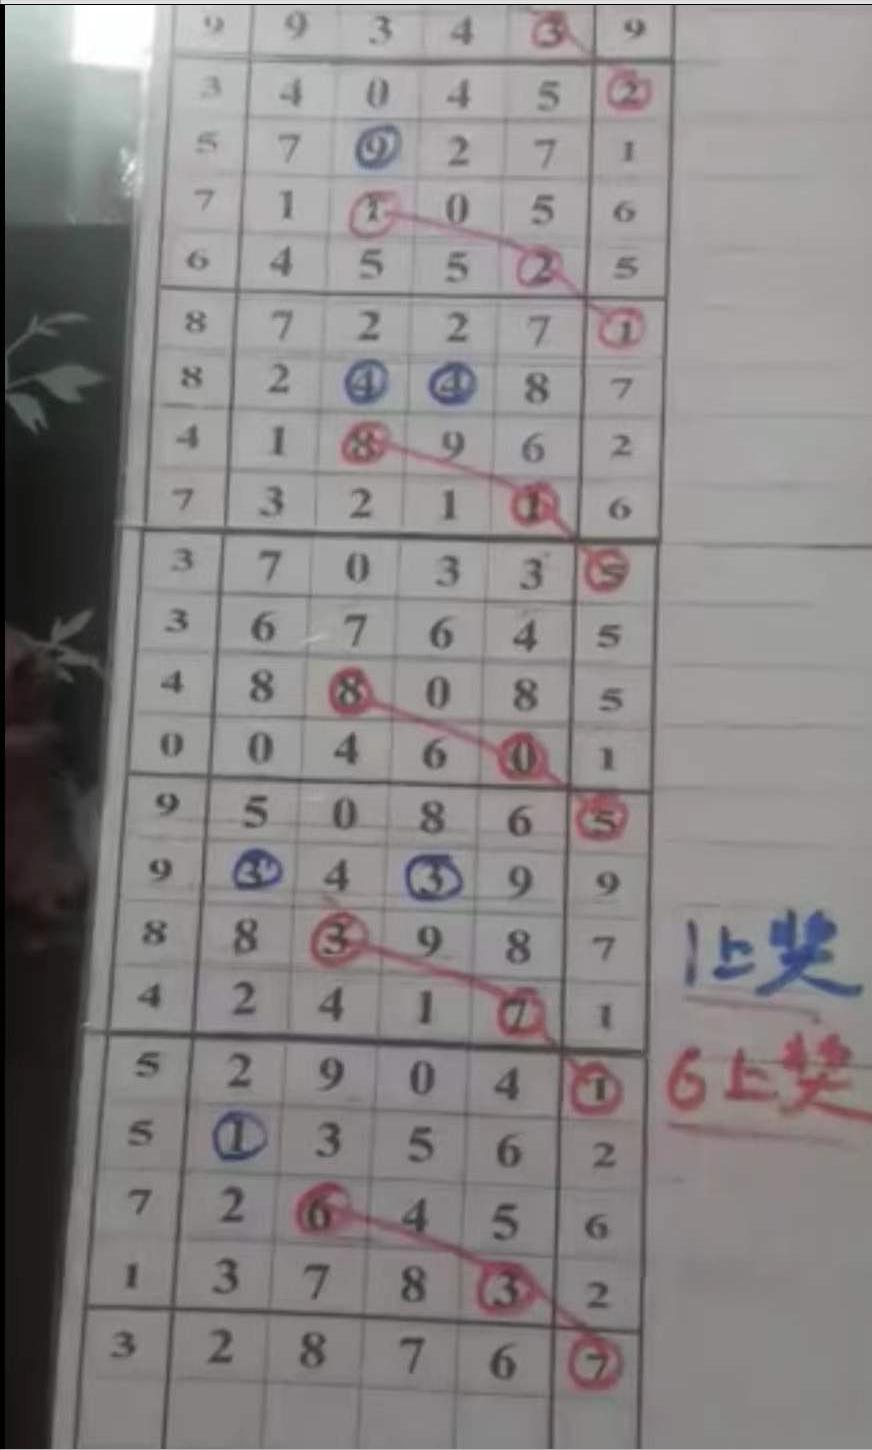 9 9 3 4 3 9
3 4 0 4 5 2
5 7 9 2 7 1
7 1 1 0 5 6
6 4 5 5 2 5
8 7 2 2 7 1
8 2 4 4 8 7
4 1 8 9 6 2
7 3 2 1 1 6
3 7 0 3 3 5
3 6 7 6 4 5
4 8 8 0 8 5
0 0 4 6 0 1
9 5 0 8 6 5
9 3 4 3 9 9
8 8 3 9 8 7
1上奖
4 2 4 1 7 1
5 2 9 0 4 1
6上奖
5 1 3 5 6 2
7 2 6 4 5 6
1 3 7 8 3 2
3 2 8 7 6 7